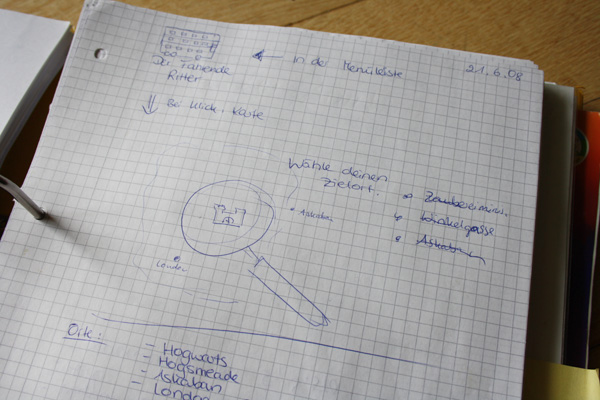 Der Fahrende
Ritter
← in der Menüleiste
21.6.08
⇓ Bei Klick: Karte
Wähle deinen
Zielort.
Zaubereiminis.
Winkelgasse
Askaban
Askaban
London
Orte:
- Hogwarts
- Hogsmeade
- Askaban
- London